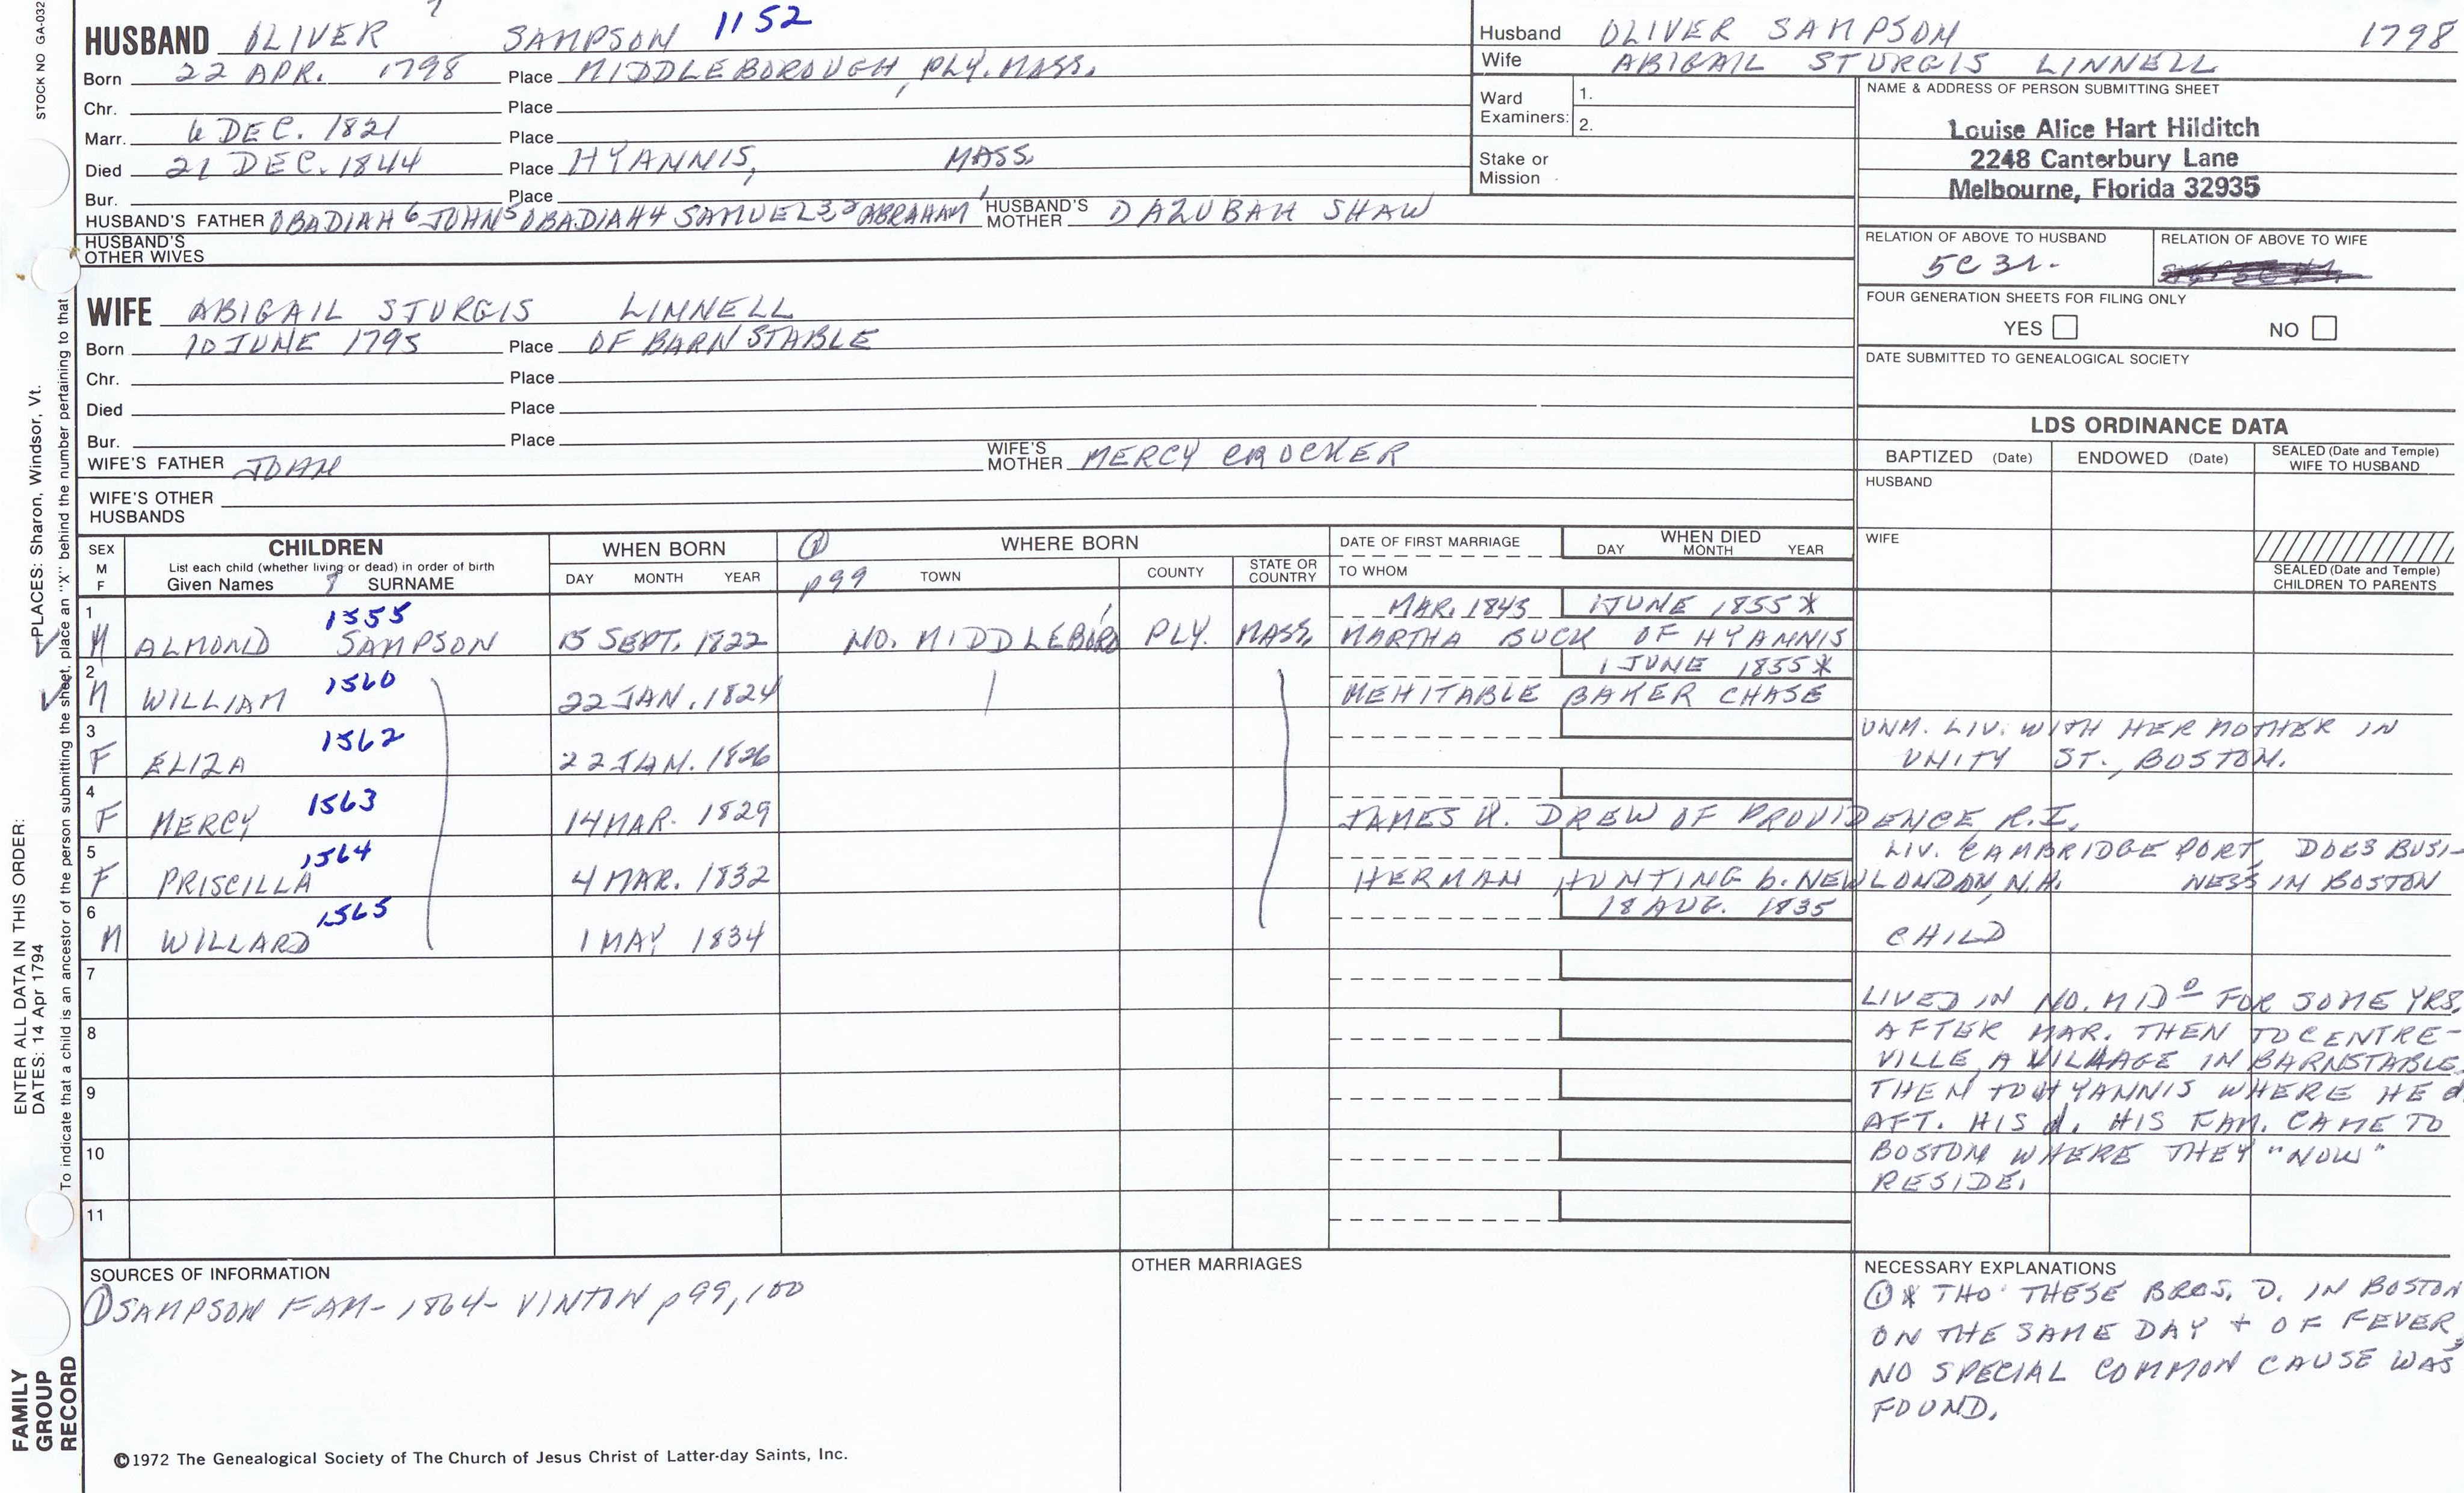 STOCK NO GA-032
HUSBAND OLIVER SAMPSON 1152
Born 22 APR. 1798 Place MIDDLEBOROUGH, PLY. MASS.
Chr. Place
Marr. 6 DEC. 1821 Place
Died 21 DEC. 1844 Place HYANNIS, MASS.
Bur. Place
HUSBAND'S FATHER OBADIAH 6 JOHN 5 OBADIAH 4 SAMUEL 3 2 ABRAHAM 1 HUSBAND'S MOTHER DAZUBAH SHAW
HUSBAND'S OTHER WIVES
Husband OLIVER SAMPSON 1798
Wife ABIGAIL STURGIS LINNELL
Ward Examiners: 1.
2.
Stake or Mission
NAME & ADDRESS OF PERSON SUBMITTING SHEET
Louise Alice Hart Hilditch
2248 Canterbury Lane
Melbourne, Florida 32935
RELATION OF ABOVE TO HUSBAND RELATION OF ABOVE TO WIFE
5C 3r.
FOUR GENERATION SHEETS FOR FILING ONLY
YES NO
DATE SUBMITTED TO GENEALOGICAL SOCIETY
WIFE ABIGAIL STURGIS LINNELL
Born 10 JUNE 1795 Place OF BARNSTABLE
Chr. Place
Died Place
Bur. Place
WIFE'S FATHER JOHN WIFE'S MOTHER MERCY CROCKER
WIFE'S OTHER HUSBANDS
LDS ORDINANCE DATA
BAPTIZED (Date) ENDOWED (Date) SEALED (Date and Temple) WIFE TO HUSBAND
HUSBAND
WIFE
SEALED (Date and Temple) CHILDREN TO PARENTS
SEX M F CHILDREN WHEN BORN ① WHERE BORN DATE OF FIRST MARRIAGE WHEN DIED
List each child (whether living or dead) in order of birth
Given Names SURNAME DAY MONTH YEAR p99 TOWN COUNTY STATE OR COUNTRY TO WHOM DAY MONTH YEAR
1 1555 MAR. 1845 1 JUNE 1855 *
M ALMOND SAMPSON 15 SEPT. 1822 NO. MIDDLEBORO PLY. MASS. MARTHA BUCK OF HYANNIS
2 1560 1 JUNE 1855 *
M WILLIAM 22 JAN. 1824 MEHITABLE BAKER CHASE
3 1562 UNM. LIV. WITH HER MOTHER IN
F ELIZA 22 JAN. 1826 UNITY ST., BOSTON.
4 1563
F MERCY 14 MAR. 1829 JAMES H. DREW OF PROVIDENCE, R.I.
5 1564 LIV. CAMBRIDGE PORT, DOES BUSI-
F PRISCILLA 4 MAR. 1832 HERMAN HUNTING b. NEW LONDON, N.H. NESS IN BOSTON
6 1565 18 AUG. 1835
M WILLARD 1 MAY 1834 CHILD
7
8
9
10
11
LIVED IN NO. MIDº FOR SOME YRS.
AFTER MAR. THEN TO CENTRE-
VILLE, A VILLAGE IN BARNSTABLE,
THEN TO HYANNIS WHERE HE d.
AFT. HIS d. HIS FAM. CAME TO
BOSTON WHERE THEY "NOW"
RESIDE.
SOURCES OF INFORMATION
① SAMPSON FAM- 1864- VINTON p 99, 100
OTHER MARRIAGES
NECESSARY EXPLANATIONS
① * THO' THESE BROS. D. IN BOSTON
ON THE SAME DAY + OF FEVER,
NO SPECIAL COMMON CAUSE WAS
FOUND.
©1972 The Genealogical Society of The Church of Jesus Christ of Latter-day Saints, Inc.
FAMILY GROUP RECORD
ENTER ALL DATA IN THIS ORDER:
DATES: 14 Apr 1794
PLACES: Sharon, Windsor, Vt.
To indicate that a child is an ancestor of the person submitting the sheet, place an "X" behind the number pertaining to that